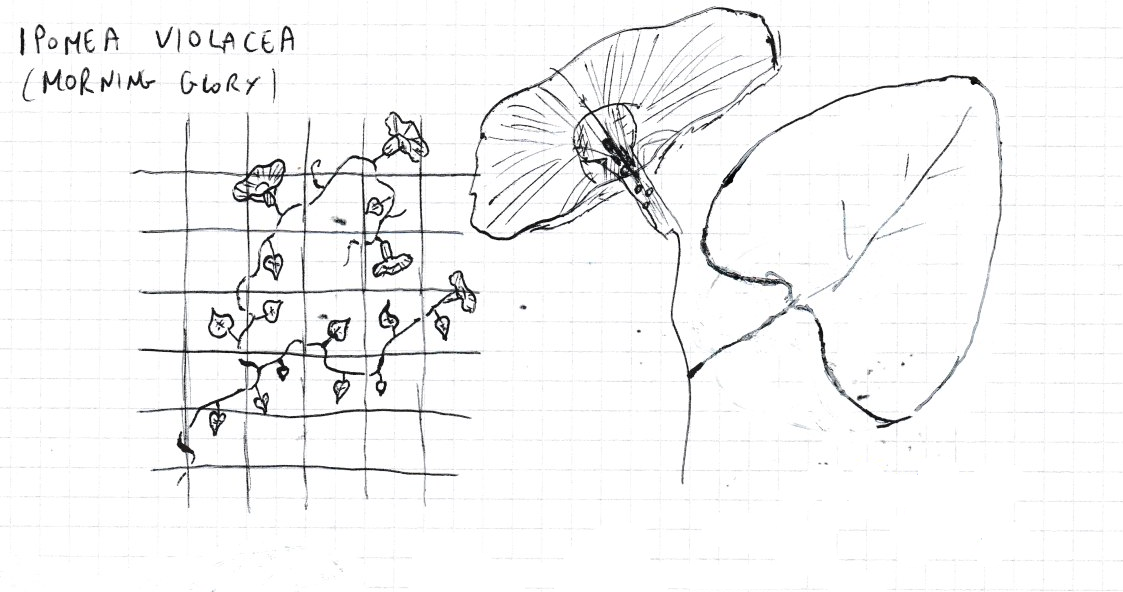 IPOMEA VIOLACEA
(MORNING GLORY)